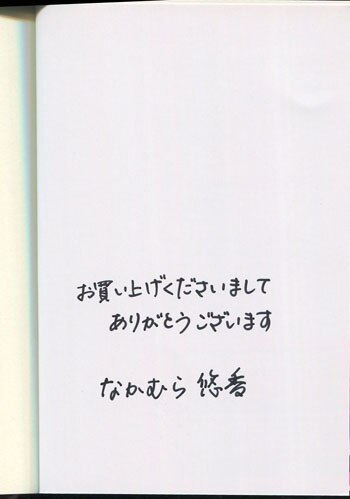 お買い上げくださいまして
ありがとうございます
なかむら 悠香